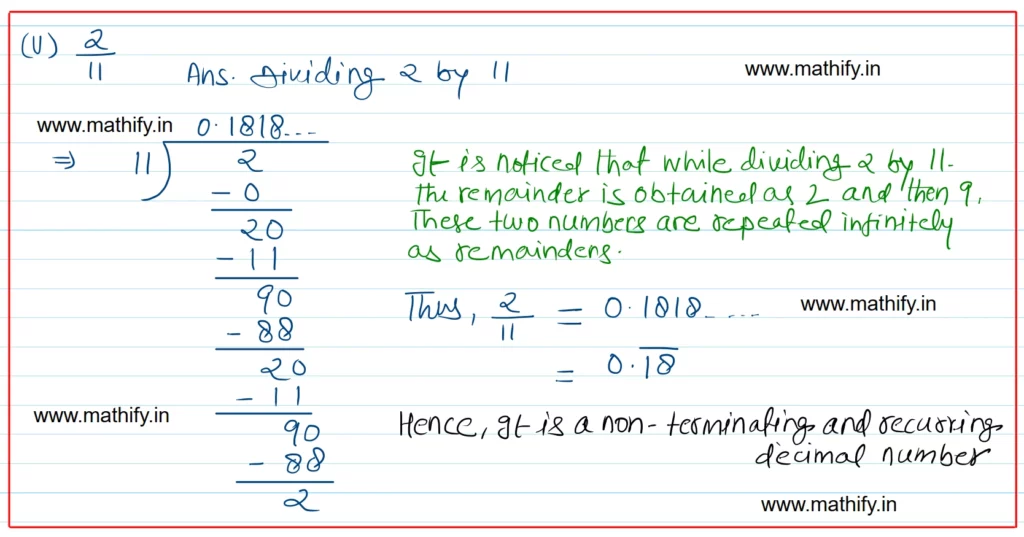 (V) 2/11
Ans. Dividing 2 by 11
www.mathify.in
www.mathify.in
0.1818...
⇒ 11) 2
- 0
20
- 11
90
- 88
20
- 11
90
- 88
2
www.mathify.in
It is noticed that while dividing 2 by 11.
The remainder is obtained as 2 and then 9.
These two numbers are repeated infinitely
as remainders.
Thus, 2/11 = 0.1818.....
www.mathify.in
= 0.1̅8̅
Hence, It is a non-terminating and recurring
decimal number
www.mathify.in